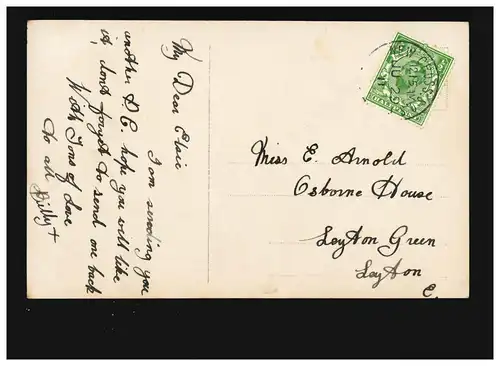 My Dear Elsie
I am sending you
another P.C. hope you will like
it, dont forget to send one back
With Tons of Love
to all Billy +
Miss E. Arnold
Osborne House
Leyton Green
Leyton
E.